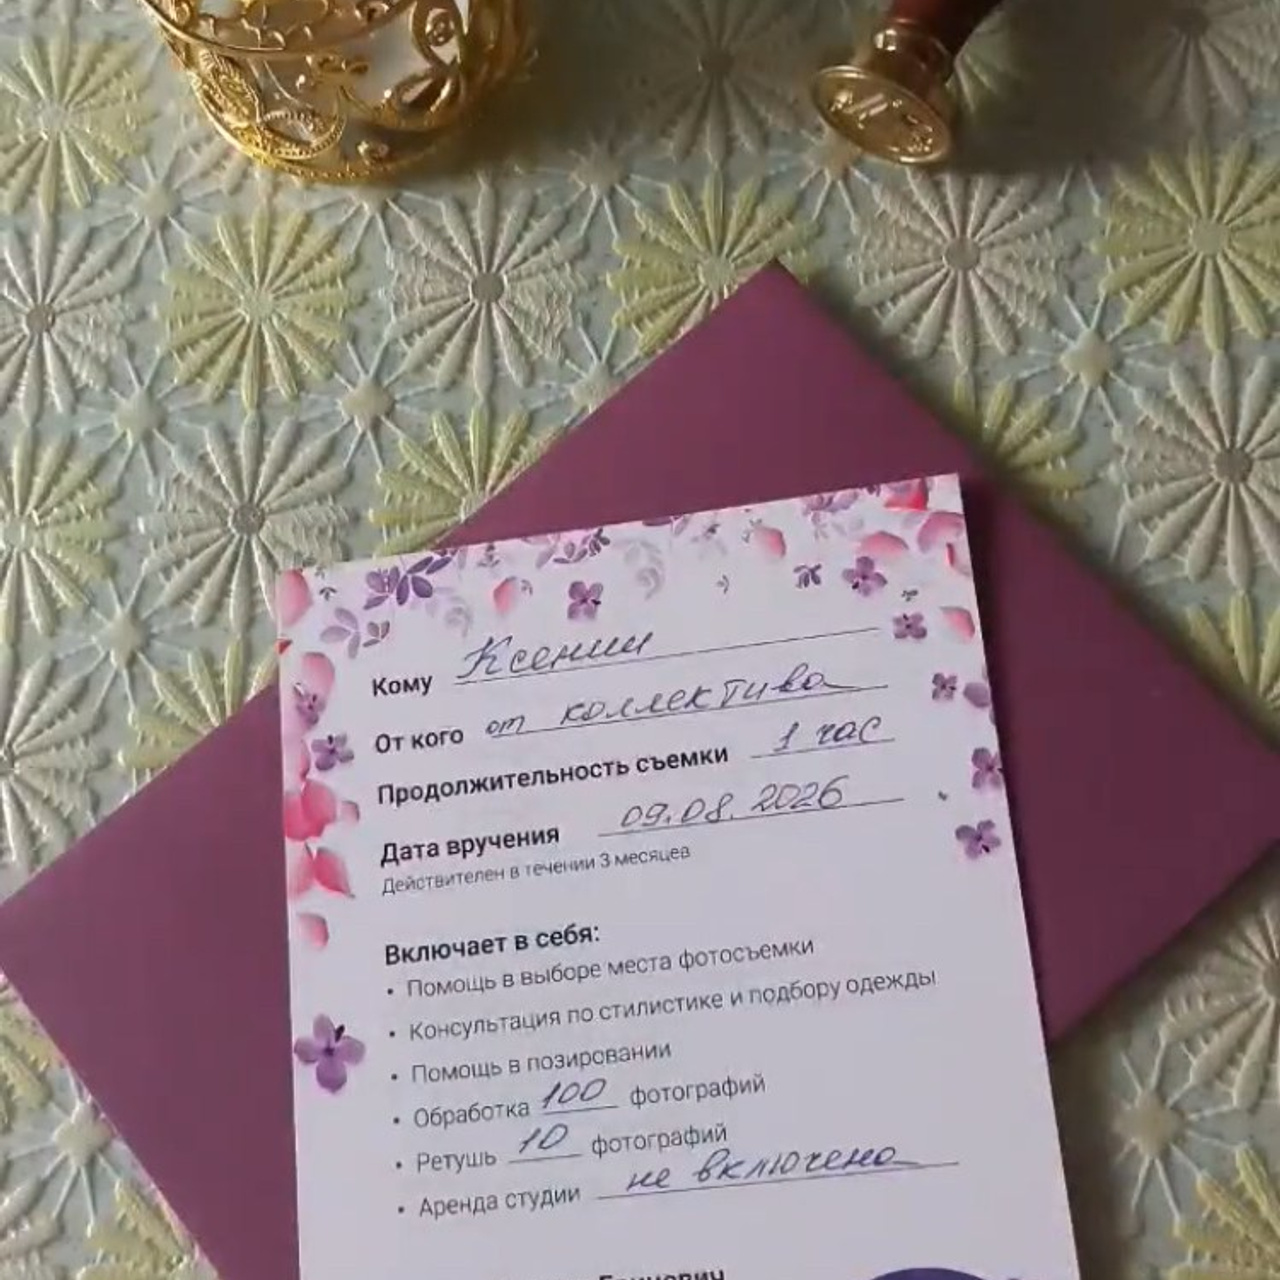 Кому Ксении
От кого от коллектива
Продолжительность съемки 1 час
Дата вручения 09.08.2026
Действителен в течении 3 месяцев
Включает в себя:
• Помощь в выборе места фотосъемки
• Консультация по стилистике и подбору одежды
• Помощь в позировании
• Обработка 100 фотографий
• Ретушь 10 фотографий
• Аренда студии не включена